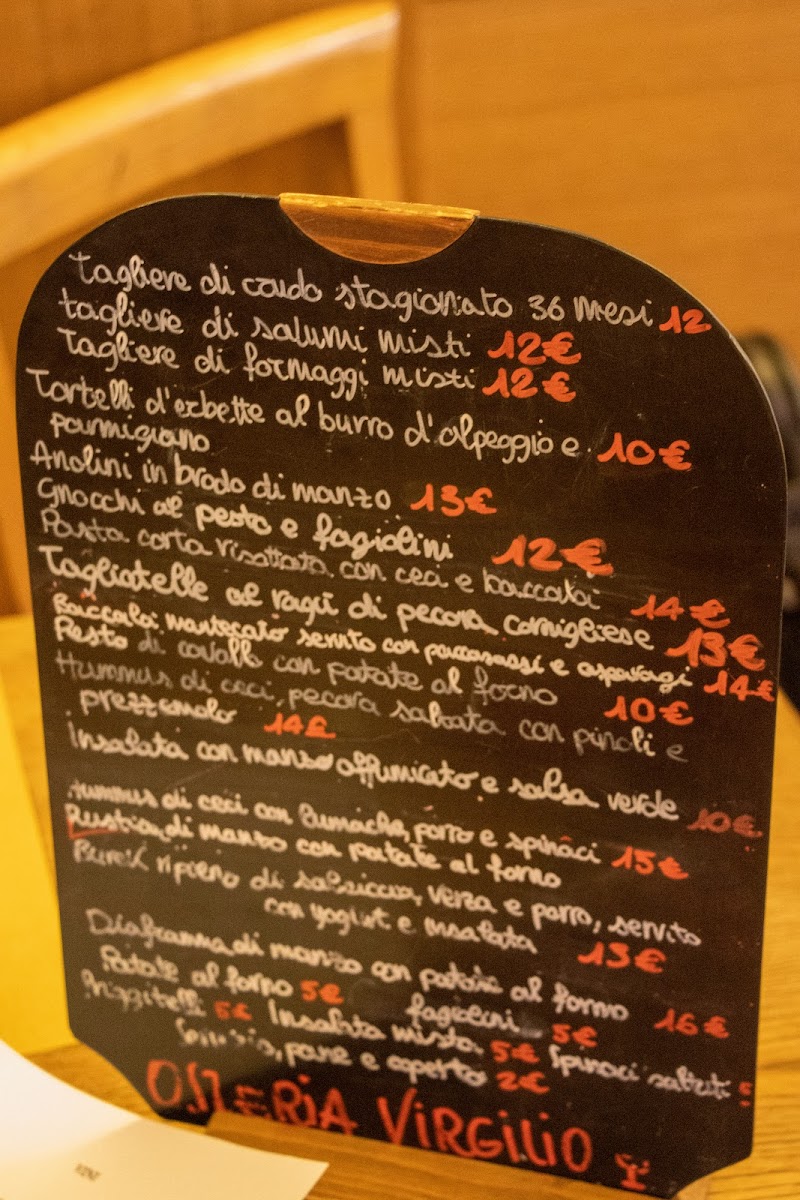 Tagliere di crudo stagionato 36 mesi 12
tagliere di salumi misti 12€
Tagliere di formaggi misti 12€
Tortelli d'erbette al burro d'alpeggio e 10€
parmigiano
Anolini in brodo di manzo 13€
Gnocchi al pesto e fagiolini 12€
Pasta corta risottata con ceci e baccalà 14€
Tagliatelle al ragù di pecora cornigliese 13€
Baccalà mantecato servito con e asparagi 14€
Pesto di cavallo con patate al forno 10€
Hummus di ceci, pecora saltata con pinoli e
prezzemolo 14€
Insalata con manzo affumicato e salsa verde 10€
Hummus di ceci con lumache, porro e spinaci 15€
di manzo con patate al forno
ripieno di salsiccia, verza e porro, servito
con yogurt e insalata 13€
Diaframma di manzo con patate al forno 16€
Patate al forno 5€ fagiolini 5€
Friggitelli 5€ Insalata mista 5€ Spinaci saltati 5
Servizio, pane e coperto 2€
OSTERIA VIRGILIO
VINI